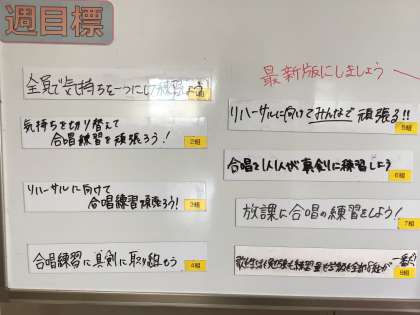 週目標
最新版にしましょう
全員で気持ちを一つにして練習しよう
1組
気持ちを切り替えて
合唱練習を頑張ろう!
2組
リハーサルに向けて
合唱練習頑張ろう!
3組
合唱練習に真剣に取り組もう
4組
リハーサルに向けてみんなで頑張る!!
5組
合唱で1人1人が真剣に練習しよう
6組
放課に合唱の練習をしよう!
7組
8組が一番だ
8組